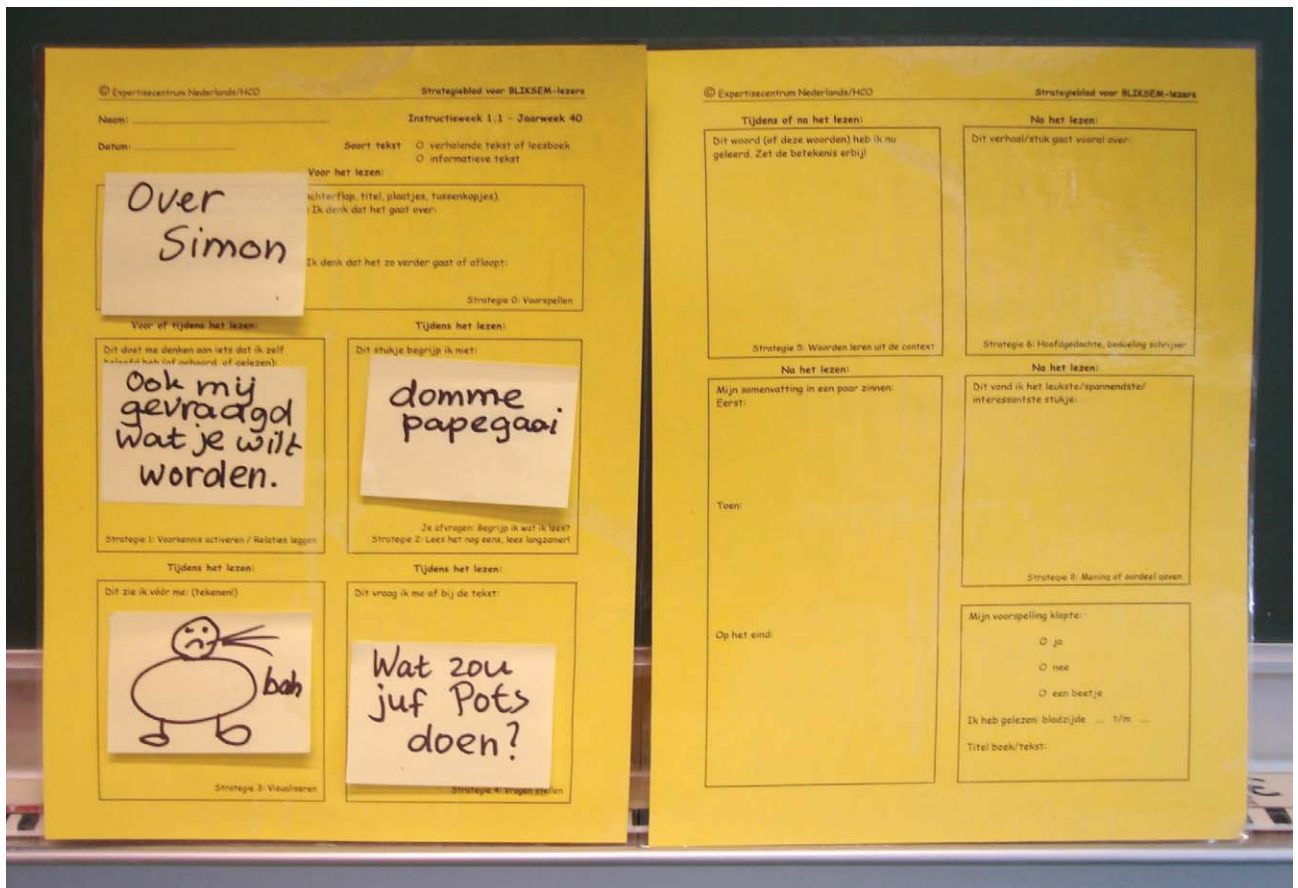 © Expertisecentrum Nederlands/HCO Strategieblad voor BLIKSEM-lezers
Naam: Instructieweek 1.1 - Jaarweek 40
Datum: Soort tekst O verhalende tekst of leesboek
O informatieve tekst
Voor het lezen:
achterflap, titel, plaatjes, tussenkopjes).
Ik denk dat het gaat over:
Over
Simon
Ik denk dat het zo verder gaat of afloopt:
Strategie 0: Voorspellen
Voor of tijdens het lezen:
Dit doet me denken aan iets dat ik zelf
beleefd heb (of gehoord, of gelezen):
Ook mij
gevraagd
wat je wilt
worden.
Strategie 1: Voorkennis activeren / Relaties leggen
Tijdens het lezen:
Dit stukje begrijp ik niet:
domme
papegaai
Je afvragen: Begrijp ik wat ik lees?
Strategie 2: Lees het nog eens, lees langzamer!
Tijdens het lezen:
Dit zie ik vóór me: (tekenen!)
bah
Strategie 3: Visualiseren
Tijdens het lezen:
Dit vraag ik me af bij de tekst:
Wat zou
juf Pots
doen?
Strategie 4: Vragen stellen
© Expertisecentrum Nederlands/HCO Strategieblad voor BLIKSEM-lezers
Tijdens of na het lezen:
Dit woord (of deze woorden) heb ik nu
geleerd. Zet de betekenis erbij!
Strategie 5: Woorden leren uit de context
Na het lezen:
Dit verhaal/stuk gaat vooral over:
Strategie 6: Hoofdgedachte, bedoeling schrijver
Na het lezen:
Mijn samenvatting in een paar zinnen:
Eerst:
Toen:
Op het eind:
Na het lezen:
Dit vond ik het leukste/spannendste/
interessantste stukje:
Strategie 8: Mening of oordeel geven
Mijn voorspelling klopte:
O ja
O nee
O een beetje
Ik heb gelezen: bladzijde ... t/m ...
Titel boek/tekst: